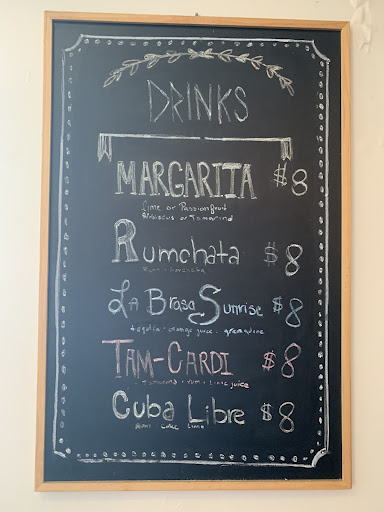 DRINKS
MARGARITA $8
Lime or Passionfruit
Hibiscus or Tamarind
Rumchata $8
Rum + horchata
La Brasa Sunrise $8
tequila + orange juice + grenadine
TAM-CARDI $8
Tamarind + rum + lime juice
Cuba Libre $8
Rum Coke Lime